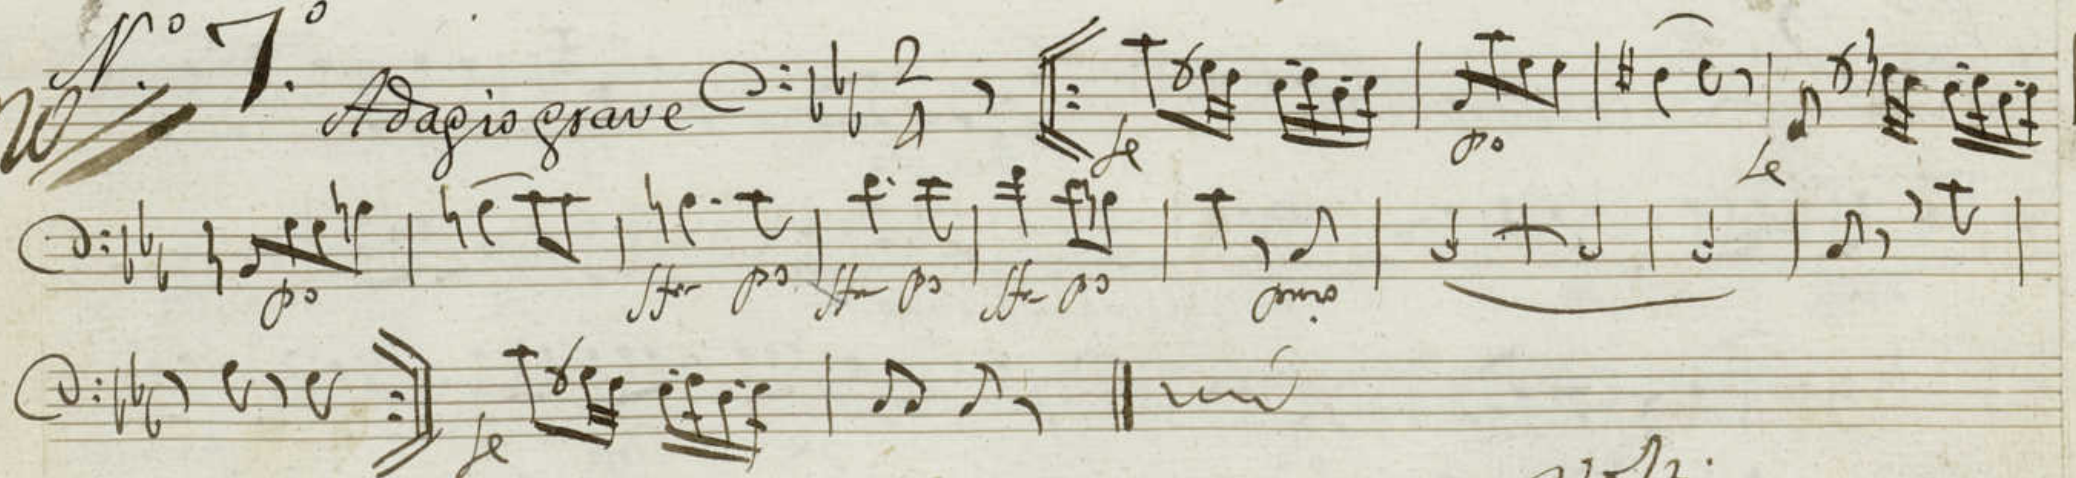 N.º 7.º
Adagio grave 2/4
fe po fe
po sfor po sfor po sfor po pmo
fe